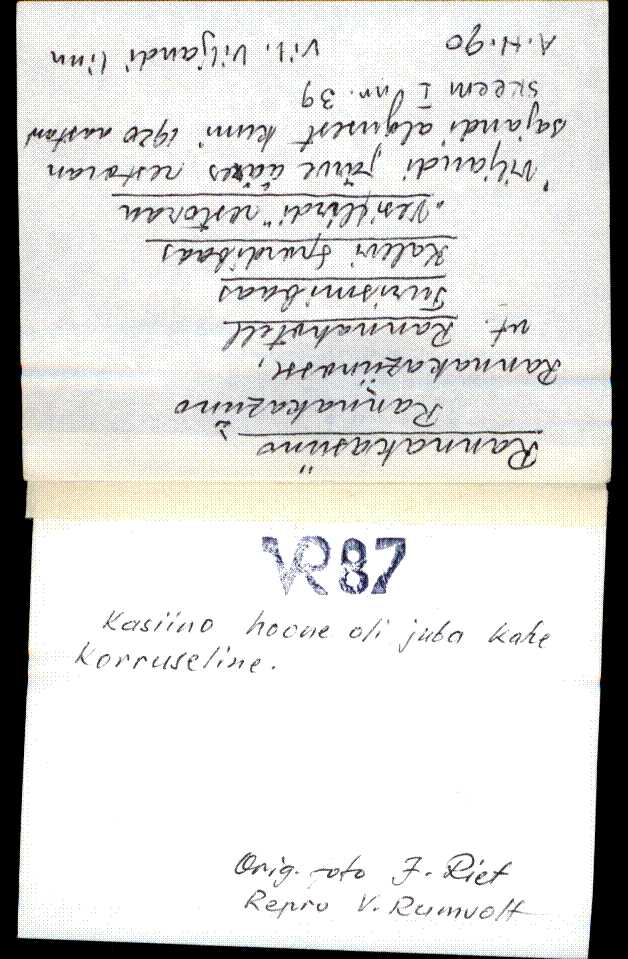 Rannakasiino
Rannakaziino
Rannakaziinoss,
vt. Rannahotell
Turismibaas
Kalevi spordibaas
"Vesiflirdi" restoran
Viljandi järve ääres restoran
sajandi algusest kuni 1920 aastani
skeem I nr. 39
A.H. 90 Vil. Viljandi linn
VR87
Kasiino hoone oli juba kahe
korruseline.
Orig. foto J. Riet
Repro V. Rumvolt